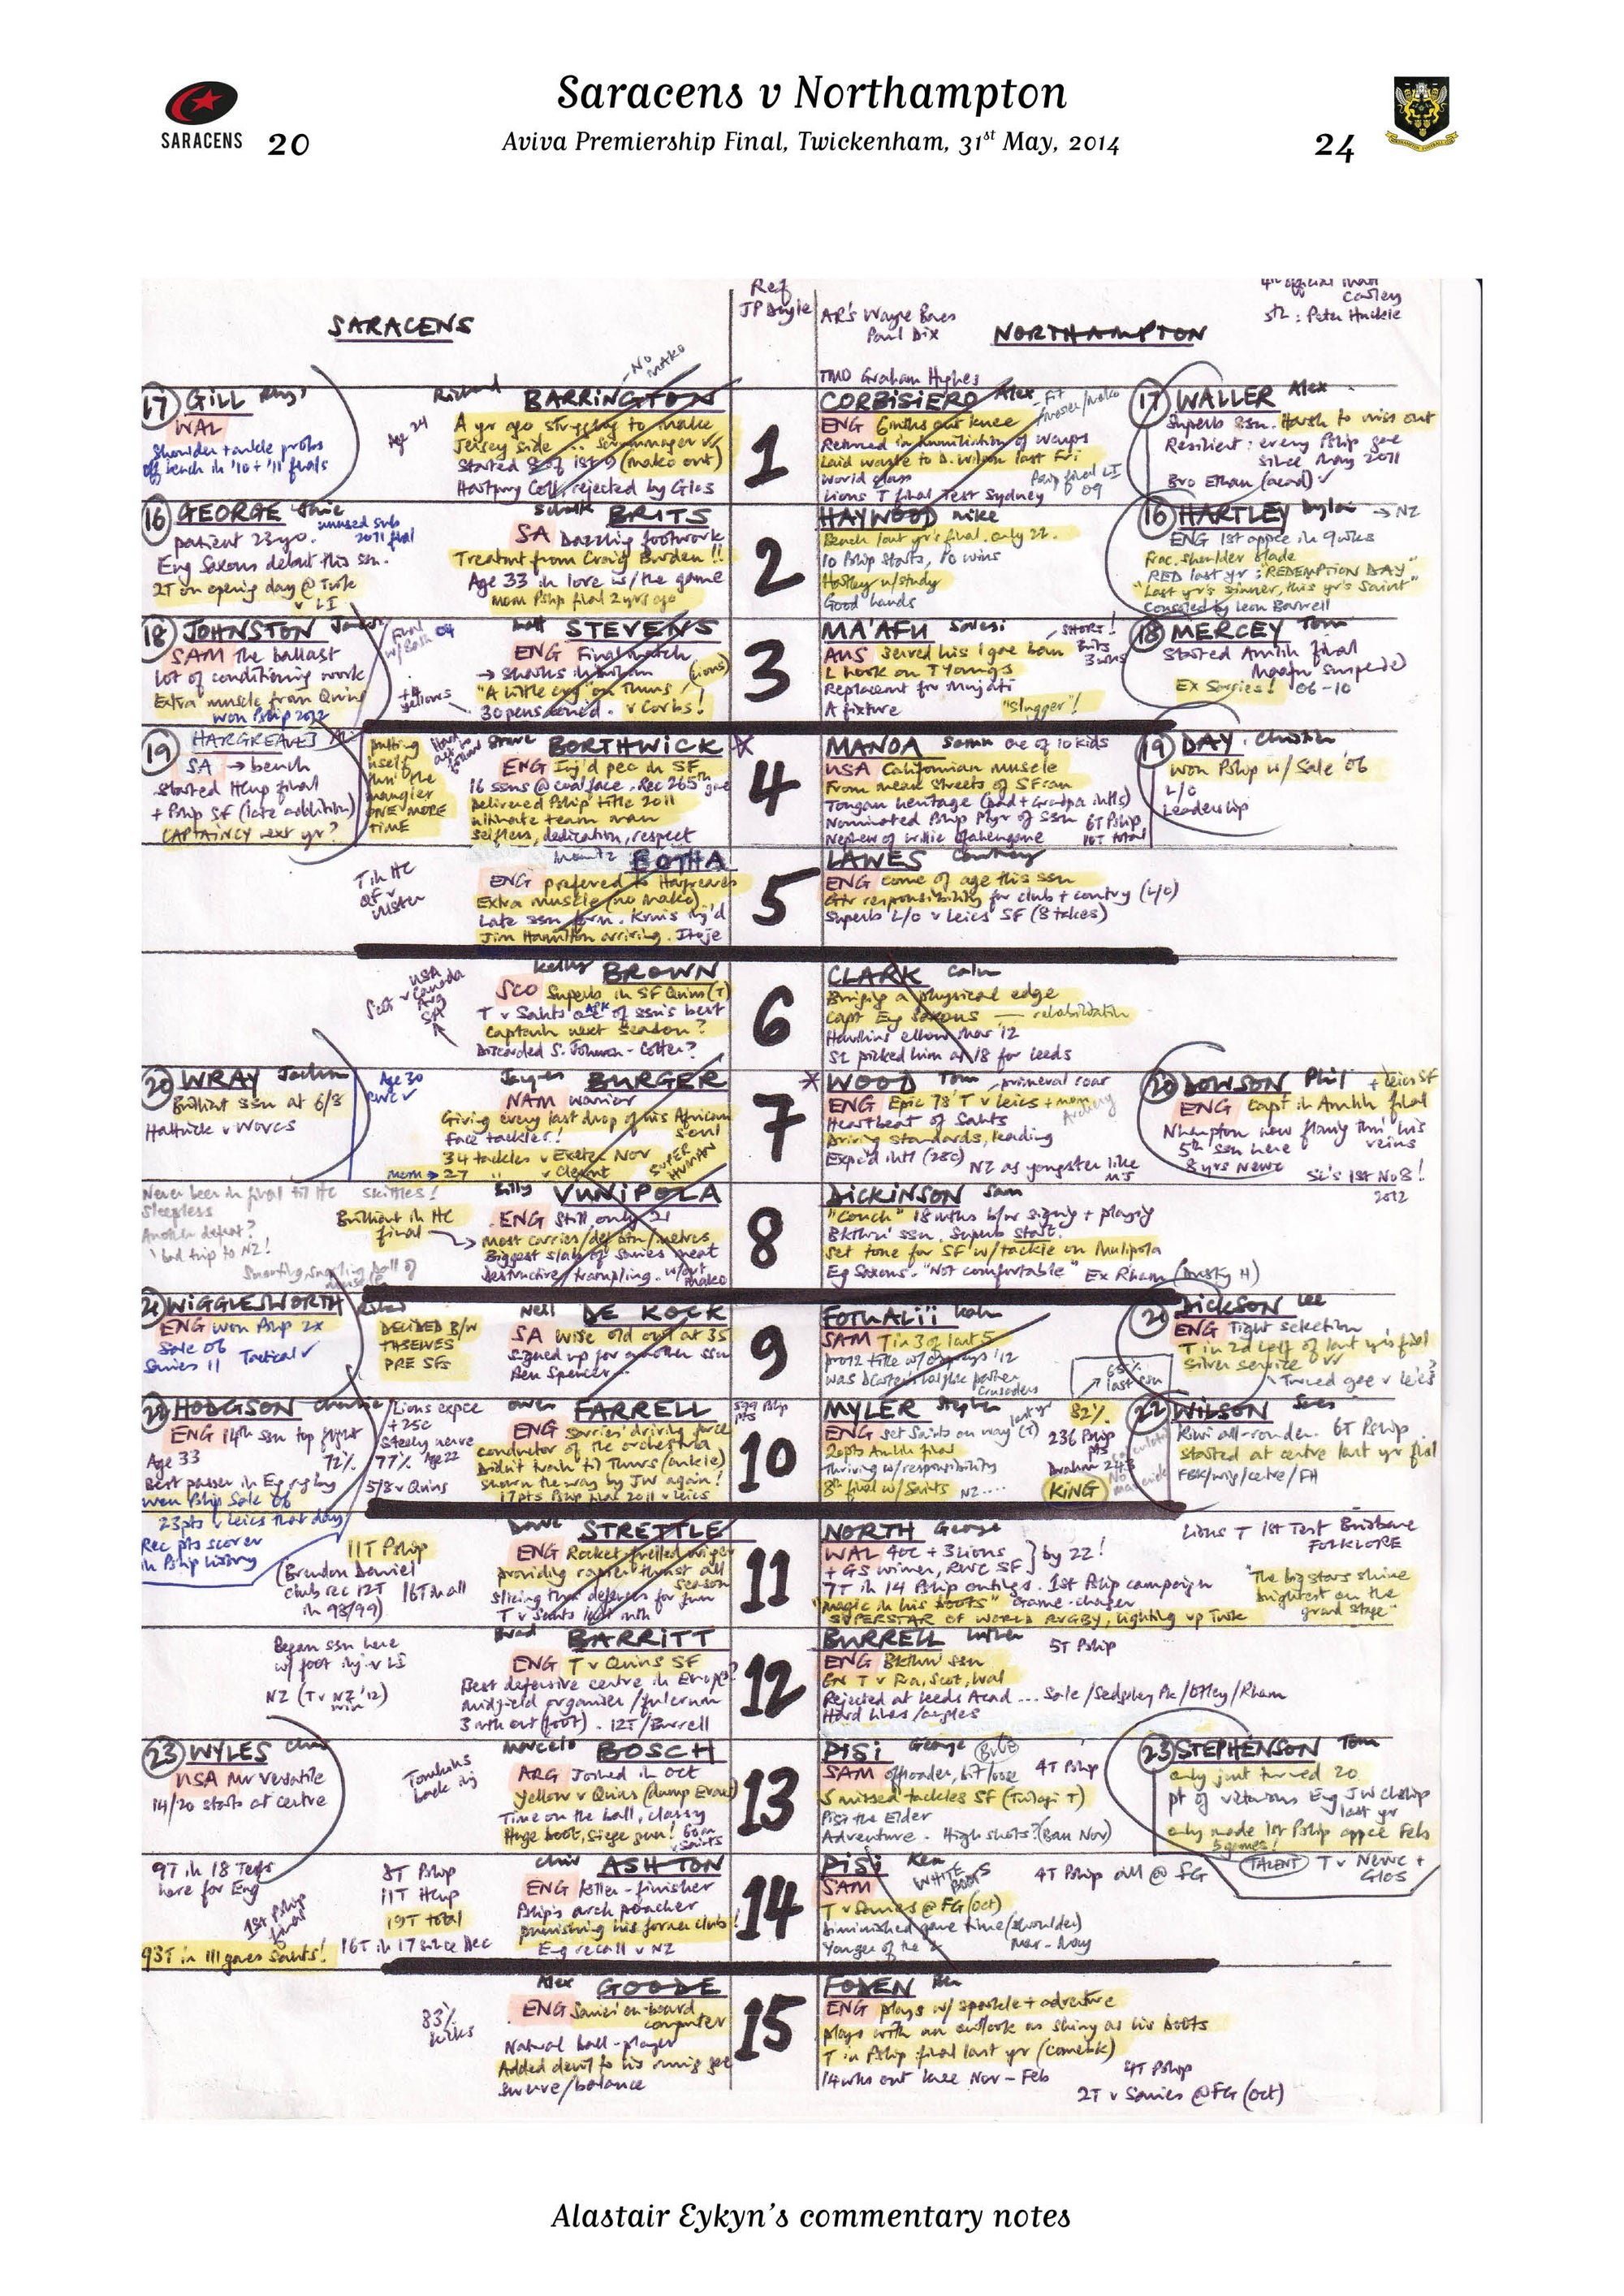 Saracens v Northampton
Aviva Premiership Final, Twickenham, 31st May, 2014
SARACENS 20
24
Ref
JP Doyle
AR's Wayne Barnes
Paul Dix
TMO Graham Hughes
Casley
SARACENS
NORTHAMPTON
17 GILL Rhys
WAL
Shoulder + ankle probs
off bench in '10 + '11 finals
Age 24
Richard BARRINGTON
NO MAKO
A yr ago struggling to make
Jersey side ... Scrummager
Started 8 of 1st 9 (Mako out)
Hartpury Coll, rejected by Glos
1
CORBISIERO Alex
ENG 6mths out knee
Returned in humiliation of Wasps
Laid waste to D. Wilson last Fri
World class
Lions T final Test Sydney
17 WALLER Alex
Superb ssn. Harsh to miss out
Resilient: every Pship gae
since May 2011
Bro Ethan (acad)
16 GEORGE Jamie
unused sub
2011 final
patient 23yo.
Eng Saxons debut this ssn.
2T on opening day @ Twick
v LI
Schalk BRITS
SA Dazzling footwork
Treatment from Craig Burden!!
Age 33 in love w/the game
mom Pship final 2 yrs ago
2
HAYWOOD Mike
Bench last yr's final. Only 22.
10 Pship starts, 10 wins
Hartley u/study
Good hands
16 HARTLEY Dylan → NZ
ENG 1st appce in 9wks
Frac. shoulder blade
RED last yr: "REDEMPTION DAY"
"Last yr's sinner, this yr's Saint"
Consoled by Leon Barrell
18 JOHNSTON James
SAM The ballast
Lot of conditioning work
Extra muscle from Quins
won Pship 2012
Matt STEVENS
ENG Final match
→ Sharks in Durban
(Lions)
"A little cry" on Thurs
30 pens conened. v Corbs!
3
MA'AFU Salesi
AUS Served his 1 gae ban
L hook on T Youngs
Replacement for Mujati
A fixture
"Slugger"!
18 MERCEY Tom
Started Amlin final
Ma'afu suspended
Ex Sarries! 06-10
19 HARGREAVES Al
SA → bench
Started HCup final
+ Pship SF (late addition)
CAPTAINCY next yr?
putting
itself
thru' the
mangler
ONE MORE
TIME
Steve BORTHWICK
ENG Inj'd pec in SF
16 ssns @ coalface. Rec 265th gae
Delivered Pship title 2011
Ultimate team man
Selfless, dedication, respect
4
MANOA Samu one of 10 kids
USA Californian muscle
From mean streets of SFran
Tongan heritage (Dad + Grandpa intls)
Nominated Pship Plyr of Ssn 6T Pship
Nephew of Willie Ofahengaue 10T total
19 DAY Christian
Won Pship w/ Sale '06
L/O
Leadership
T in HC
QF v
Ulster
Mouritz BOTHA
ENG preferred to Hargreaves
Extra muscle (no Mako)
Late ssn form. Kruis inj'd
Jim Hamilton arriving. Itoje
5
LAWES Courtney
ENG come of age this ssn
Gtr responsibility for club + country (L/O)
Superb L/O v Leics SF (8 takes)
Kelly BROWN
SCO Superb in SF Quins (T)
T v Saints one of ssn's best
Captain next season?
Discarded S. Johnson - Cotter?
6
CLARK Calum
Bringing a physical edge
Capt Eng Saxons — rehabilitation
Hawkins elbow Mar '12
SL picked him at 18 for Leeds
20 WRAY Jackson
Brilliant ssn at 6/8
Hattrick v Worcs
Age 30
RWC ✓
Jacques BURGER
NAM Warrior
Giving every last drop of his African
soul
Face tackler!
34 tackles v Exeter Nov
mom → 27 " v Clermt
SUPER
HUMAN
7
WOOD Tom primeval roar
ENG Epic 78' T v Leics + mom
Archery
Heartbeat of Saints
Driving standards, leading
Exp'd intl (28c)
NZ as youngster like
MJ
20 DOWSON Phil + Leics SF
ENG Capt in Amlin final
Nhampton now flowing thru' his
veins
5th ssn here
8 yrs Newc
SL's 1st No8!
2012
Never been in final til HC
Sleepless
Another defeat?
bad trip to NZ!
Skittles!
Brilliant in HC
final
Snorting, snarling ball of
muscle
Billy VUNIPOLA
ENG Still only 21
most carries/def btn/metres
Biggest slab of Sarries meat
Destructive/trampling. w/out
Mako
8
DICKINSON Sam
"Couch" 18mths b/w signing + playing
Bkthru' ssn. Superb start.
Set tone for SF w/tackle on Mulipola
Eng Saxons. "Not comfortable" Ex Rham (Dusty H)
21 WIGGLESWORTH Richard
ENG won Pship 2x
Sale 06
Sarries 11 Tactical ✓
DECIDED B/W
THSELVES
PRE SFS
Neil DE KOCK
SA Wise old owl at 35
Signed up for another ssn
Ben Spencer...
9
FOTUALII Kahn
SAM T in 3 of last 5
Pro12 title w/Ospreys '12
Crusaders
21 DICKSON Lee
ENG Tight selection
T in 2d half of last yr's final
Silver service
Turned gae v Leics?
65%
last ssn
22 HODGSON Charlie
ENG 14th ssn top flight
Age 33 72%
Best passer in Eng rugby
won Pship Sale 06
23pts v Leics that day
Rec pts scorer
in Pship history
Lions expce
+ 25c
Steely nerve
77% Age 22
5/8 v Quins
Owen FARRELL
ENG Sarries' driving force
conductor of the orchestra
Didn't train til Thurs (ankle)
Shown the way by JW again!
17pts Pship final 2011 v Leics
599 Pship
pts
10
MYLER Stephen
ENG Set Saints on way (T)
last yr
20pts Amlin final
Thriving w/responsibility
8th final w/ Saints NZ....
82%
236 Pship
pts
KING
22 WILSON
Kiwi all-rounder. 6T Pship
Started at centre last yr final
FBK/wing/centre/FH
11T Pship
(Brendon Daniel
club rec 12T 16T in all
in 98/99)
Dave STRETTLE
ENG Rocket-fuelled winger
providing rapier thrust all
season
Slicing thru defences for fun
T v Saints last mth
11
NORTH George
WAL 40c + 3 Lions } by 22!
+ GS winner, RWC SF
7T in 14 Pship outings. 1st Pship campaign
"Magic in his boots" Game-changer
SUPERSTAR OF WORLD RUGBY, lighting up Twick
Lions T 1st Test Brisbane
FOLKLORE
"The big stars shine
brightest on the
grand stage"
Began ssn here
w/ foot inj v LI
NZ (T v NZ '12)
win
Brad BARRITT
ENG T v Quins SF
Best defensive centre in Europe?
Midfield organiser/fulcrum
3 mth out (foot). 12T/Burrell
12
BURRELL Luther 5T Pship
ENG Bkthru' ssn
6N T v Fra, Scot, Wal
Rejected at Leeds Acad ... Sale/Sedgley Pk/Otley/Rham
Hard lines/angles
23 WYLES Chris
USA Mr Versatile
14/20 starts at centre
Tomkins
back inj
Marcelo BOSCH
ARG Joined in Oct
Yellow v Quins (dump Evans)
Time on the ball, classy
Huge boot, siege gun! 60m
v Saints
13
PISI George
SAM offloader, bit loose 4T Pship
5 missed tackles SF (Tuilagi T)
Pisi the Elder
Adventure. High shots? (Ban Nov)
23 STEPHENSON Tom
only just turned 20
pt of victorious Eng JW Chship
last yr
only made 1st Pship appce Feb
5 games!
TALENT T v Newc +
Glos
9T in 18 Tests
here for Eng
1st Pship
final
93T in 111 gaes Saints!
8T Pship
11T HCup
19T total
16T in 17 since Dec
Chris ASHTON
ENG killer-finisher
Pship's arch poacher
punishing his former club!
Eng recall v NZ
14
PISI Ken
WHITE
BOOTS
SAM
T v Sarries @ FG (Oct)
Diminished game time (shoulder)
Younger of the 2 Mar-May
4T Pship all @ FG
83%
kicks
Alex GOODE
ENG Sarries' on-board
computer
Natural ball-player
Added devil to his running gae
Swerve/balance
15
FODEN Ben
ENG plays w/ sparkle + adventure
plays with an outlook as shiny as his boots
T in Pship final last yr (comeback)
14wks out knee Nov-Feb
4T Pship
2T v Sarries @FG (Oct)
Alastair Eykyn's commentary notes